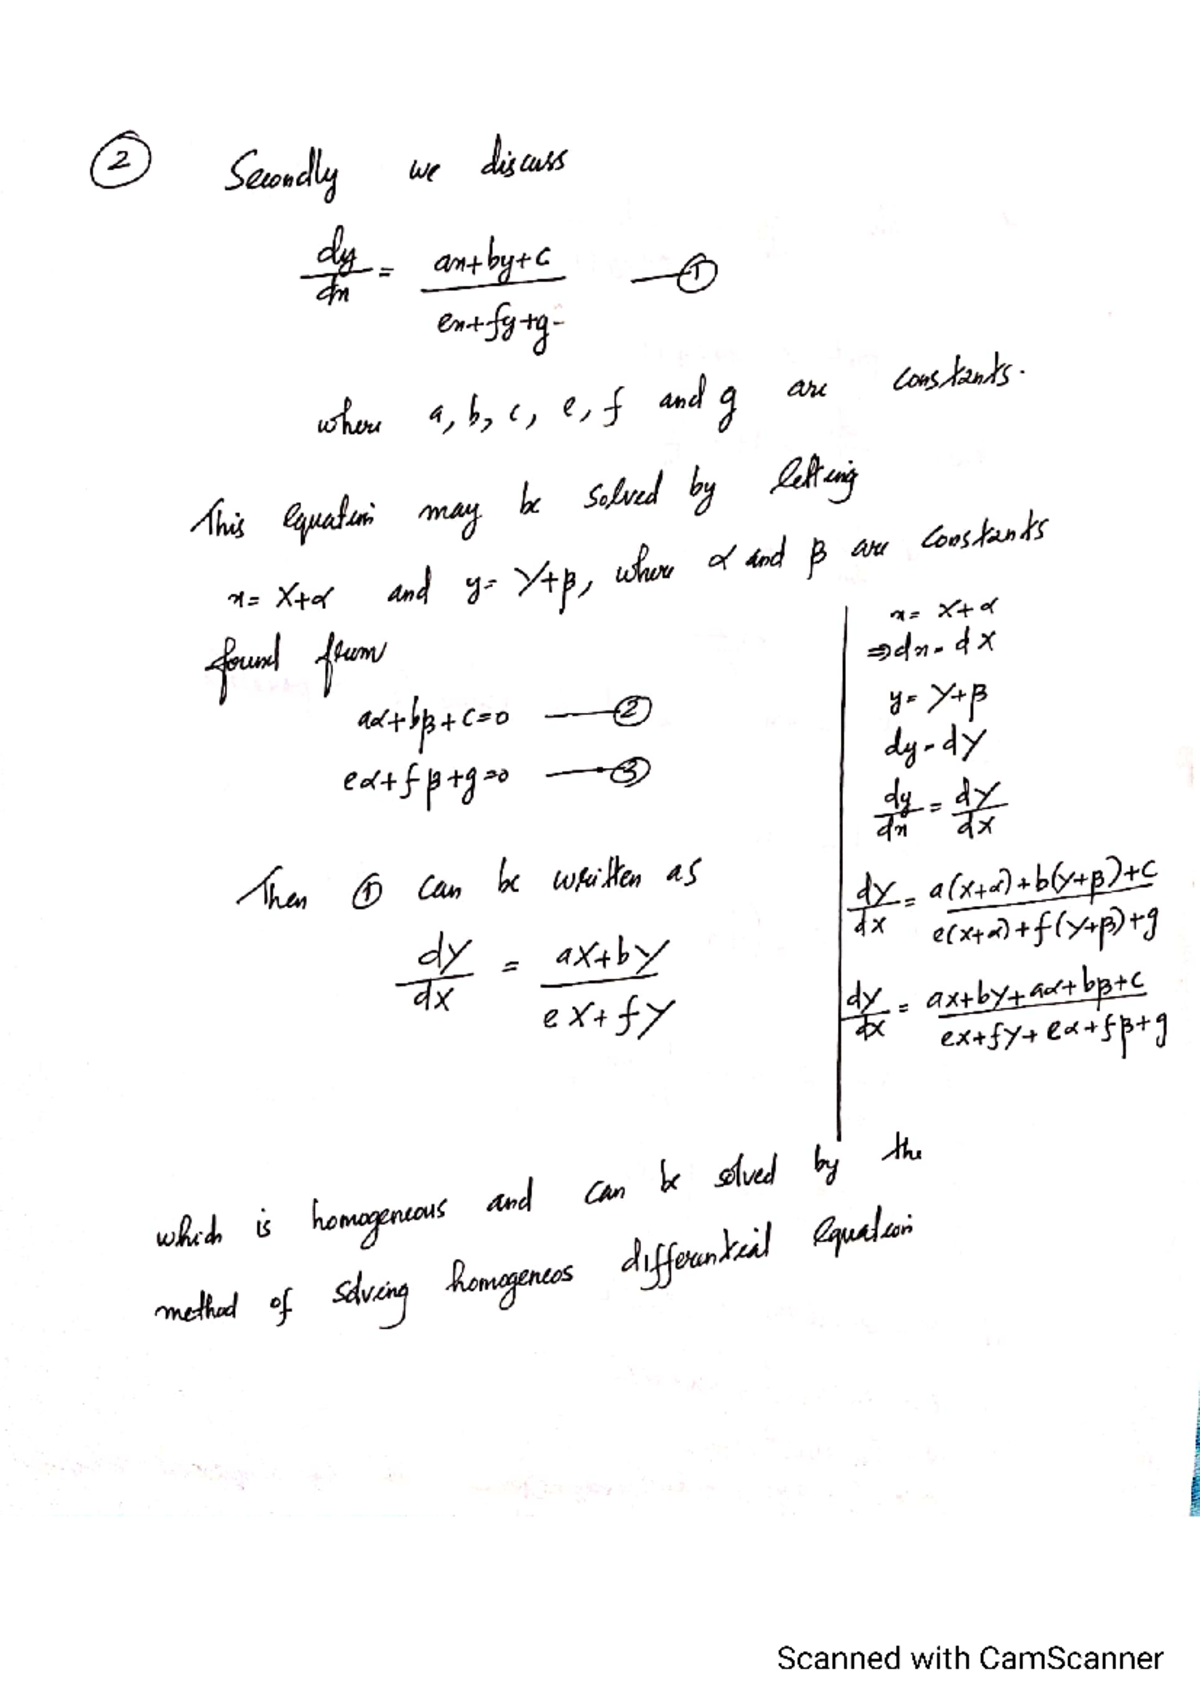 ② Secondly we discuss
dy/dx = ax+by+c / ex+fy+g — ①
where a, b, c, e, f and g are constants.
This equation may be solved by letting
x = X+α and y = Y+β, where α and β are constants
found from
aα+bβ+c=0 — ②
eα+fβ+g=0 — ③
Then ① can be written as
dY/dX = aX+bY / eX+fY
x = X+α
⇒ dx = dX
y = Y+β
dy = dY
dy/dx = dY/dX
dY/dX = a(X+α)+b(Y+β)+c / e(X+α)+f(Y+β)+g
dY/dX = aX+bY+aα+bβ+c / eX+fY+eα+fβ+g
which is homogeneous and can be solved by the
method of solving homogeneos differential equation
Scanned with CamScanner